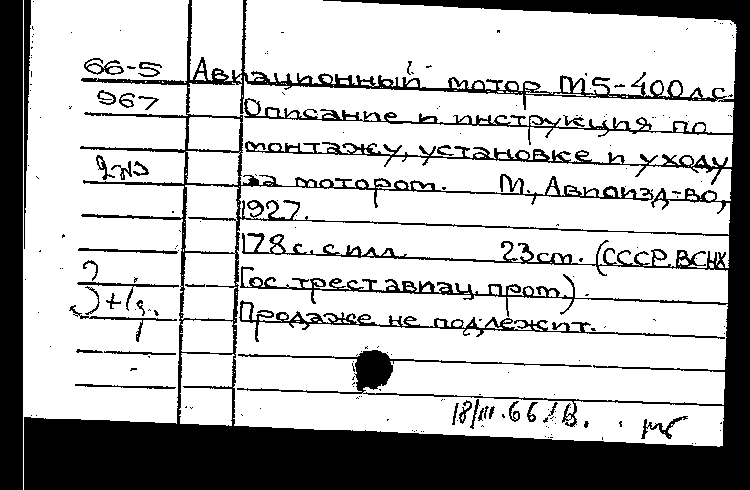 66-5 Авиационный мотор М5-400 л.с.
967 Описание и инструкция по
монтажу, установке и уходу
за мотором. М., Авиоизд-во,
1927.
178 с. с илл. 23 см. (СССР. ВСНХ
Гос. трест авиац. пром.).
Продаже не подлежит.
18/III.66